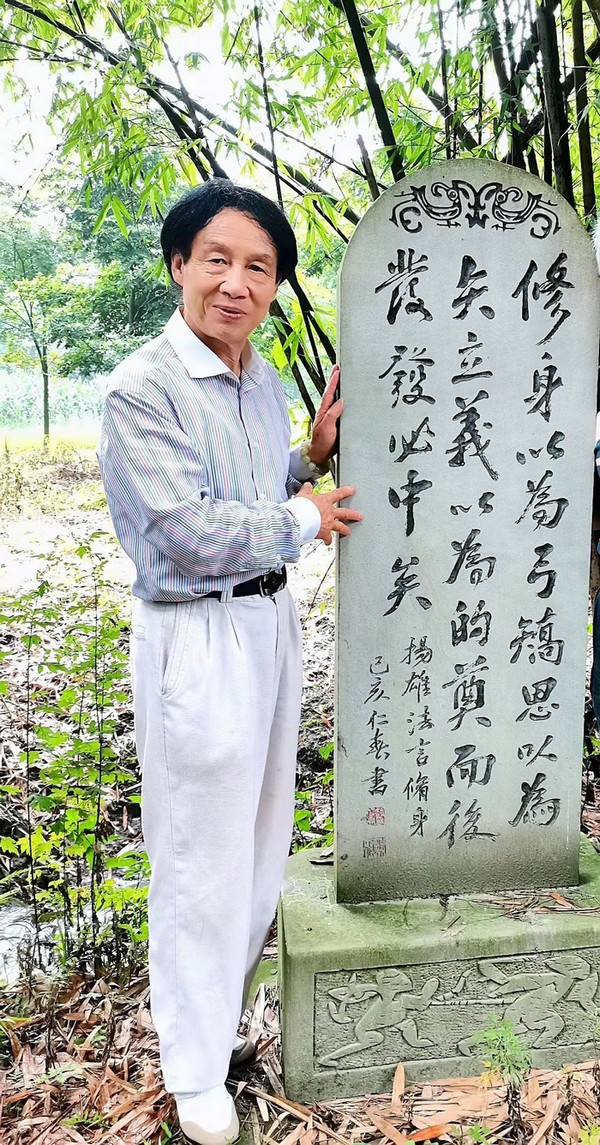 修身以為弓矯思以為
矢立義以為的奠而後
發發必中矣
揚雄法言脩身
己亥仁春書